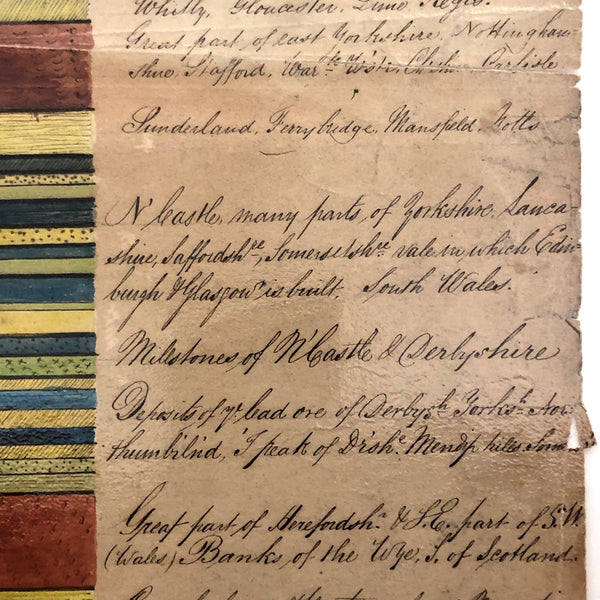 Whitby, Gloucester, Lime Regis.
Great part of east Yorkshire, Nottingham-
shire, Stafford, Carlisle
Sunderland, Ferrybridge, Mansfield, Notts
N'Castle, many parts of Yorkshire, Lanca-
shire, Saffordshre, Somersetshre vale in which Edin-
burgh & Glasgow is built, South Wales.
Millstones of N'Castle & Derbyshire
Deposits of ye lead ore of Derbysh. Yorksh. Nor-
thumbl'nd, Peak of D'sh. Mendip hills Som
Great part of Herefordshr. & S.E. part of S.W.
(Wales) Banks of the Wye, S. of Scotland.